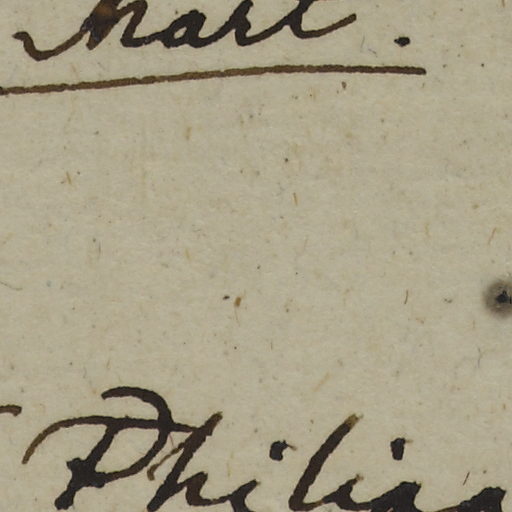 Mart.
Philipp